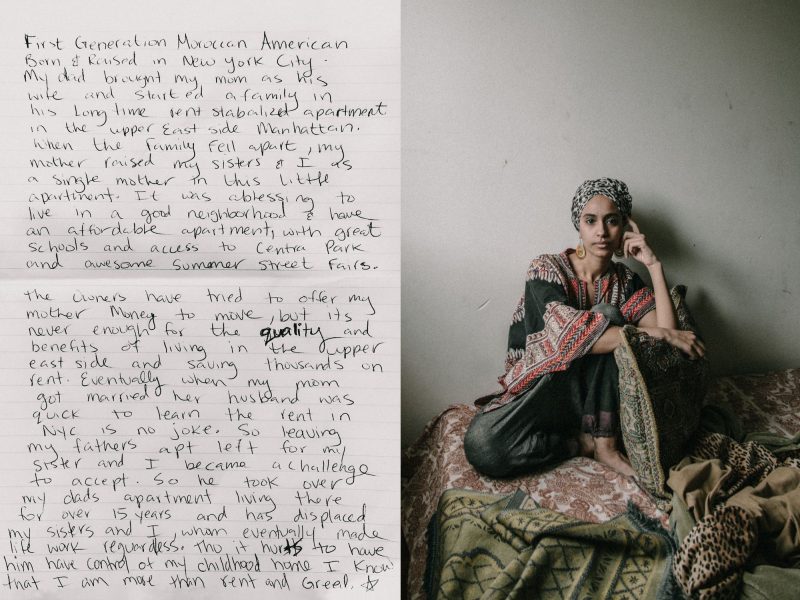 First Generation Moroccan American
Born & Raised in New York City.
My dad brought my mom as his
wife and started a family in
his Long time rent stabalized apartment
in the upper East side Manhattan.
When the Family Fell apart, my
mother raised my sisters & I as
a single mother in this little
apartment. It was a blessing to
live in a good neighborhood & have
an affordable apartment, with great
schools and access to Centra Park
and awesome summer street fairs.
the owners have tried to offer my
mother Money to move, but its
never enough for the quality and
benefits of living in the upper
east side and saving thousands on
rent. Eventually when my mom
got married her husband was
quick to learn the rent in
NYC is no joke. So leaving
my fathers apt left for my
sister and I became a challenge
to accept. So he took over
my dads apartment living there
for over 15 years and has displaced
my sisters and I, whom eventually made
life work reguardless. Tho it hurts to have
him have control of my childhood home I know
that I am more than rent and Greed.